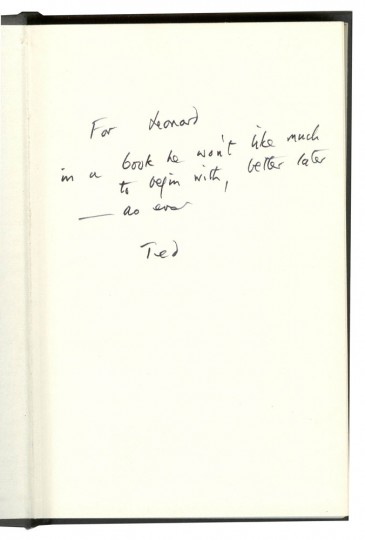 For Leonard
in a book he won't like much
to begin with, better later
— as ever
Ted